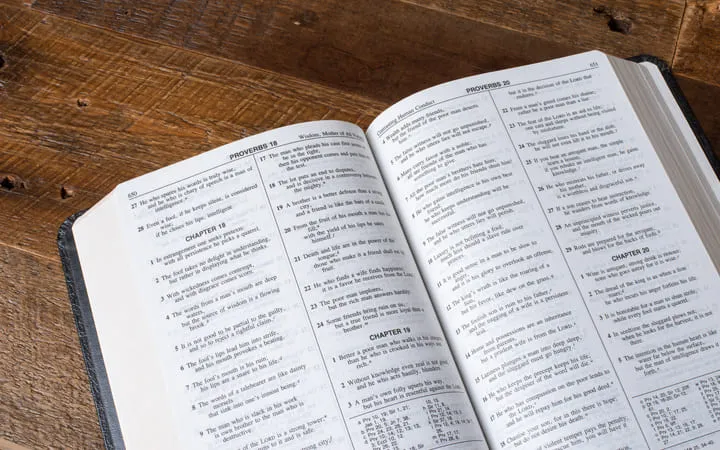 650
PROVERBS 18
Wisdom, Mother of
27 He who spares his words is truly wise,
and he who is chary of speech is a man of
28 Even a fool, if he keeps silent, is considered
wise;
if he closes his lips, intelligent
CHAPTER 18
1 In estrangement one seeks pretexts:
with all persistence he picks a quarrel.
2 The fool takes no delight in understanding,
but rather in displaying what he thinks.
3 With wickedness comes contempt,
and with disgrace comes scorn.
4 The words from a man's mouth are deep
waters,
but the source of wisdom is a flowing
brook.
5 It is not good to be partial to the guilty,
and so to reject a rightful claim.
6 The fool's lips lead him into strife,
and his mouth provokes a beating.
7 The fool's mouth is his ruin,
his lips are a snare to his life.
8 The words of a talebearer are like dainty
morsels
that sink into one's inmost being.
9 The man who is slack in his work
is own brother to the man who is
destructive.
of the LORD is a strong tower;
runs to it and is safe.
strong city
17 The man who pleads his case first seems to
be in the right;
then his opponent comes and puts him to
the test.
18 The lot puts an end to disputes,
and is decisive in a controversy between
the mighty.
19 A brother is a better defense than a strong
city,
and a friend is like the bars of a castle.
20 From the fruit of his mouth a man has
his fill,
with the yield of his lips he sates
himself.
21 Death and life are in the power of the
tongue;
those who make it a friend shall eat its
fruit.
22 He who finds a wife finds happiness;
it is a favor he receives from the LORD.
23 The poor man implores,
but the rich man answers harshly.
24 Some friends bring ruin on us,
but a true friend is more loyal than a
brother.
CHAPTER 19
1 Better a poor man who walks in his
than he who is crooked in his ways
rich.
2 Without knowledge even zeal is not good;
and he who acts hastily, blunders.
3 A man's own folly upsets his way,
but his heart is resentful against the
Concerning Human Conduct
PROVERBS 20
651
4 Wealth adds many friends,
but the friend of the poor man deserts
him.
5 The false witness will not go unpunished,
and he who utters lies will not escape.
6 Many curry favor with a noble;
7 All the poor man's brothers hate him;
how much more do his friends shun him!
8 He who gains intelligence is his own best
friend;
he who keeps understanding will be
successful.
9 The false witness will not go unpunished,
and he who utters lies will perish.
10 Luxury is not befitting a fool;
much less should a slave rule over
princes.
11 It is good sense in a man to be slow to
anger,
and it is his glory to overlook an offense.
12 The king's wrath is like the roaring of a
lion,
but his favor, like dew on the grass.
13 The foolish son is ruin to his father,
and the nagging of a wife is a persistent
leak.
14 Home and possessions are an inheritance
from parents,
but a prudent wife is from the LORD.
15 Laziness plunges a man into deep sleep,
and the sluggard must go hungry.
16 He who keeps the precept keeps his life,
but the despiser of the word will die.
17 He who has compassion on the poor lends
to the LORD,
and he will repay him for his good deed.
18 Chastise your son, for in this there is hope;
but do not desire his death.
violent temper pays the penalty;
rescue him, you will have it
but it is the decision of the LORD that
endures.
22 From a man's greed comes his shame;
rather be a poor man than a liar.
23 The fear of the LORD is an aid to life;
one eats and sleeps without being visited
by misfortune.
24 The sluggard loses his hand in the dish;
he will not even lift it to his mouth.
25 If you beat an arrogant man, the simple
learn a lesson;
if you rebuke an intelligent man, he gains
knowledge.
26 He who mistreats his father, or drives away
his mother,
is a worthless and disgraceful son.
27 If a son ceases to hear instruction,
he wanders from words of knowledge.
28 An unprincipled witness perverts justice,
and the mouth of the wicked pours out
iniquity.
29 Rods are prepared for the arrogant,
and blows for the backs of fools.
CHAPTER 20
1 Wine is arrogant, strong drink is riotous;
none who goes astray for it is wise.
2 The dread of the king is as when a lion
roars;
he who incurs his anger forfeits his life.
3 It is honorable for a man to shun strife,
while every fool starts a quarrel.
4 In seedtime the sluggard plows not;
when he looks for the harvest, it is not
there.
5 The intention in the human heart is like
water far below the surface,
but the man of intelligence draws it
forth.